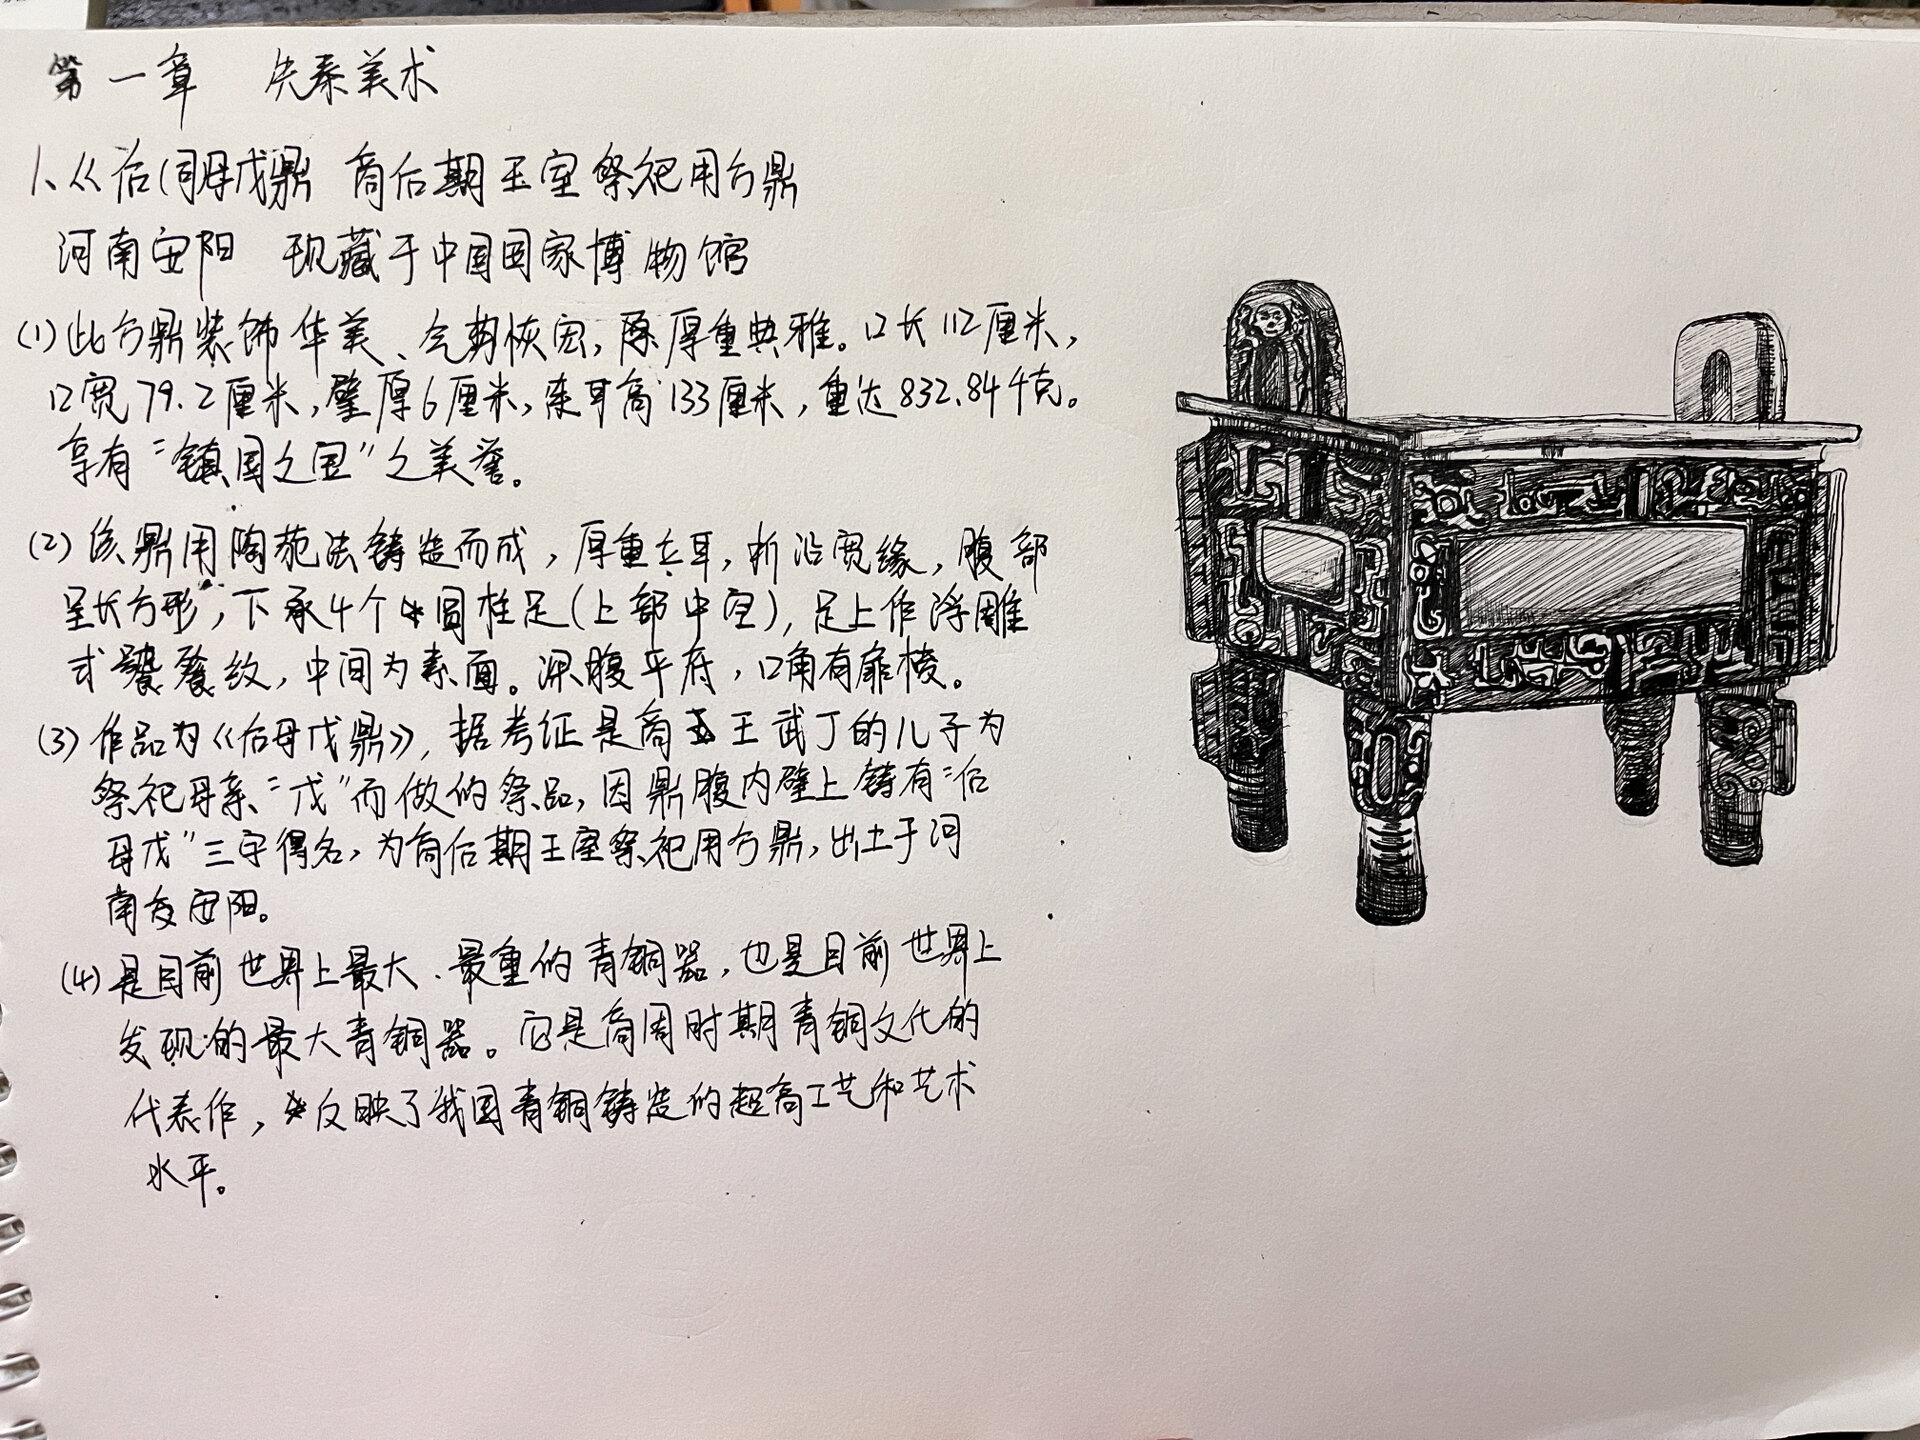 第一章 先秦美术
1、《后(司)母戊鼎 商后期王室祭祀用方鼎
河南安阳 现藏于中国国家博物馆
(1)此方鼎装饰华美、气势恢宏,厚重典雅。口长112厘米,
口宽79.2厘米,壁厚6厘米,连耳高133厘米,重达832.84千克。
享有“镇国之宝”之美誉。
(2)该鼎用陶范法铸造而成,厚重立耳,折沿宽缘,腹部
呈长方形,下承4个圆柱足(上部中空),足上作浮雕
式饕餮纹,中间为素面。深腹平底,口角有扉棱。
(3)作品为《后母戊鼎》,据考证是商王武丁的儿子为
祭祀母亲“戊”而做的祭品,因鼎腹内壁上铸有“后
母戊”三字得名,为商后期王室祭祀用方鼎,出土于河
南安阳。
(4)是目前世界上最大、最重的青铜器,也是目前世界上
发现的最大青铜器。它是商周时期青铜文化的
代表作,反映了我国青铜铸造的超高工艺和艺术
水平。